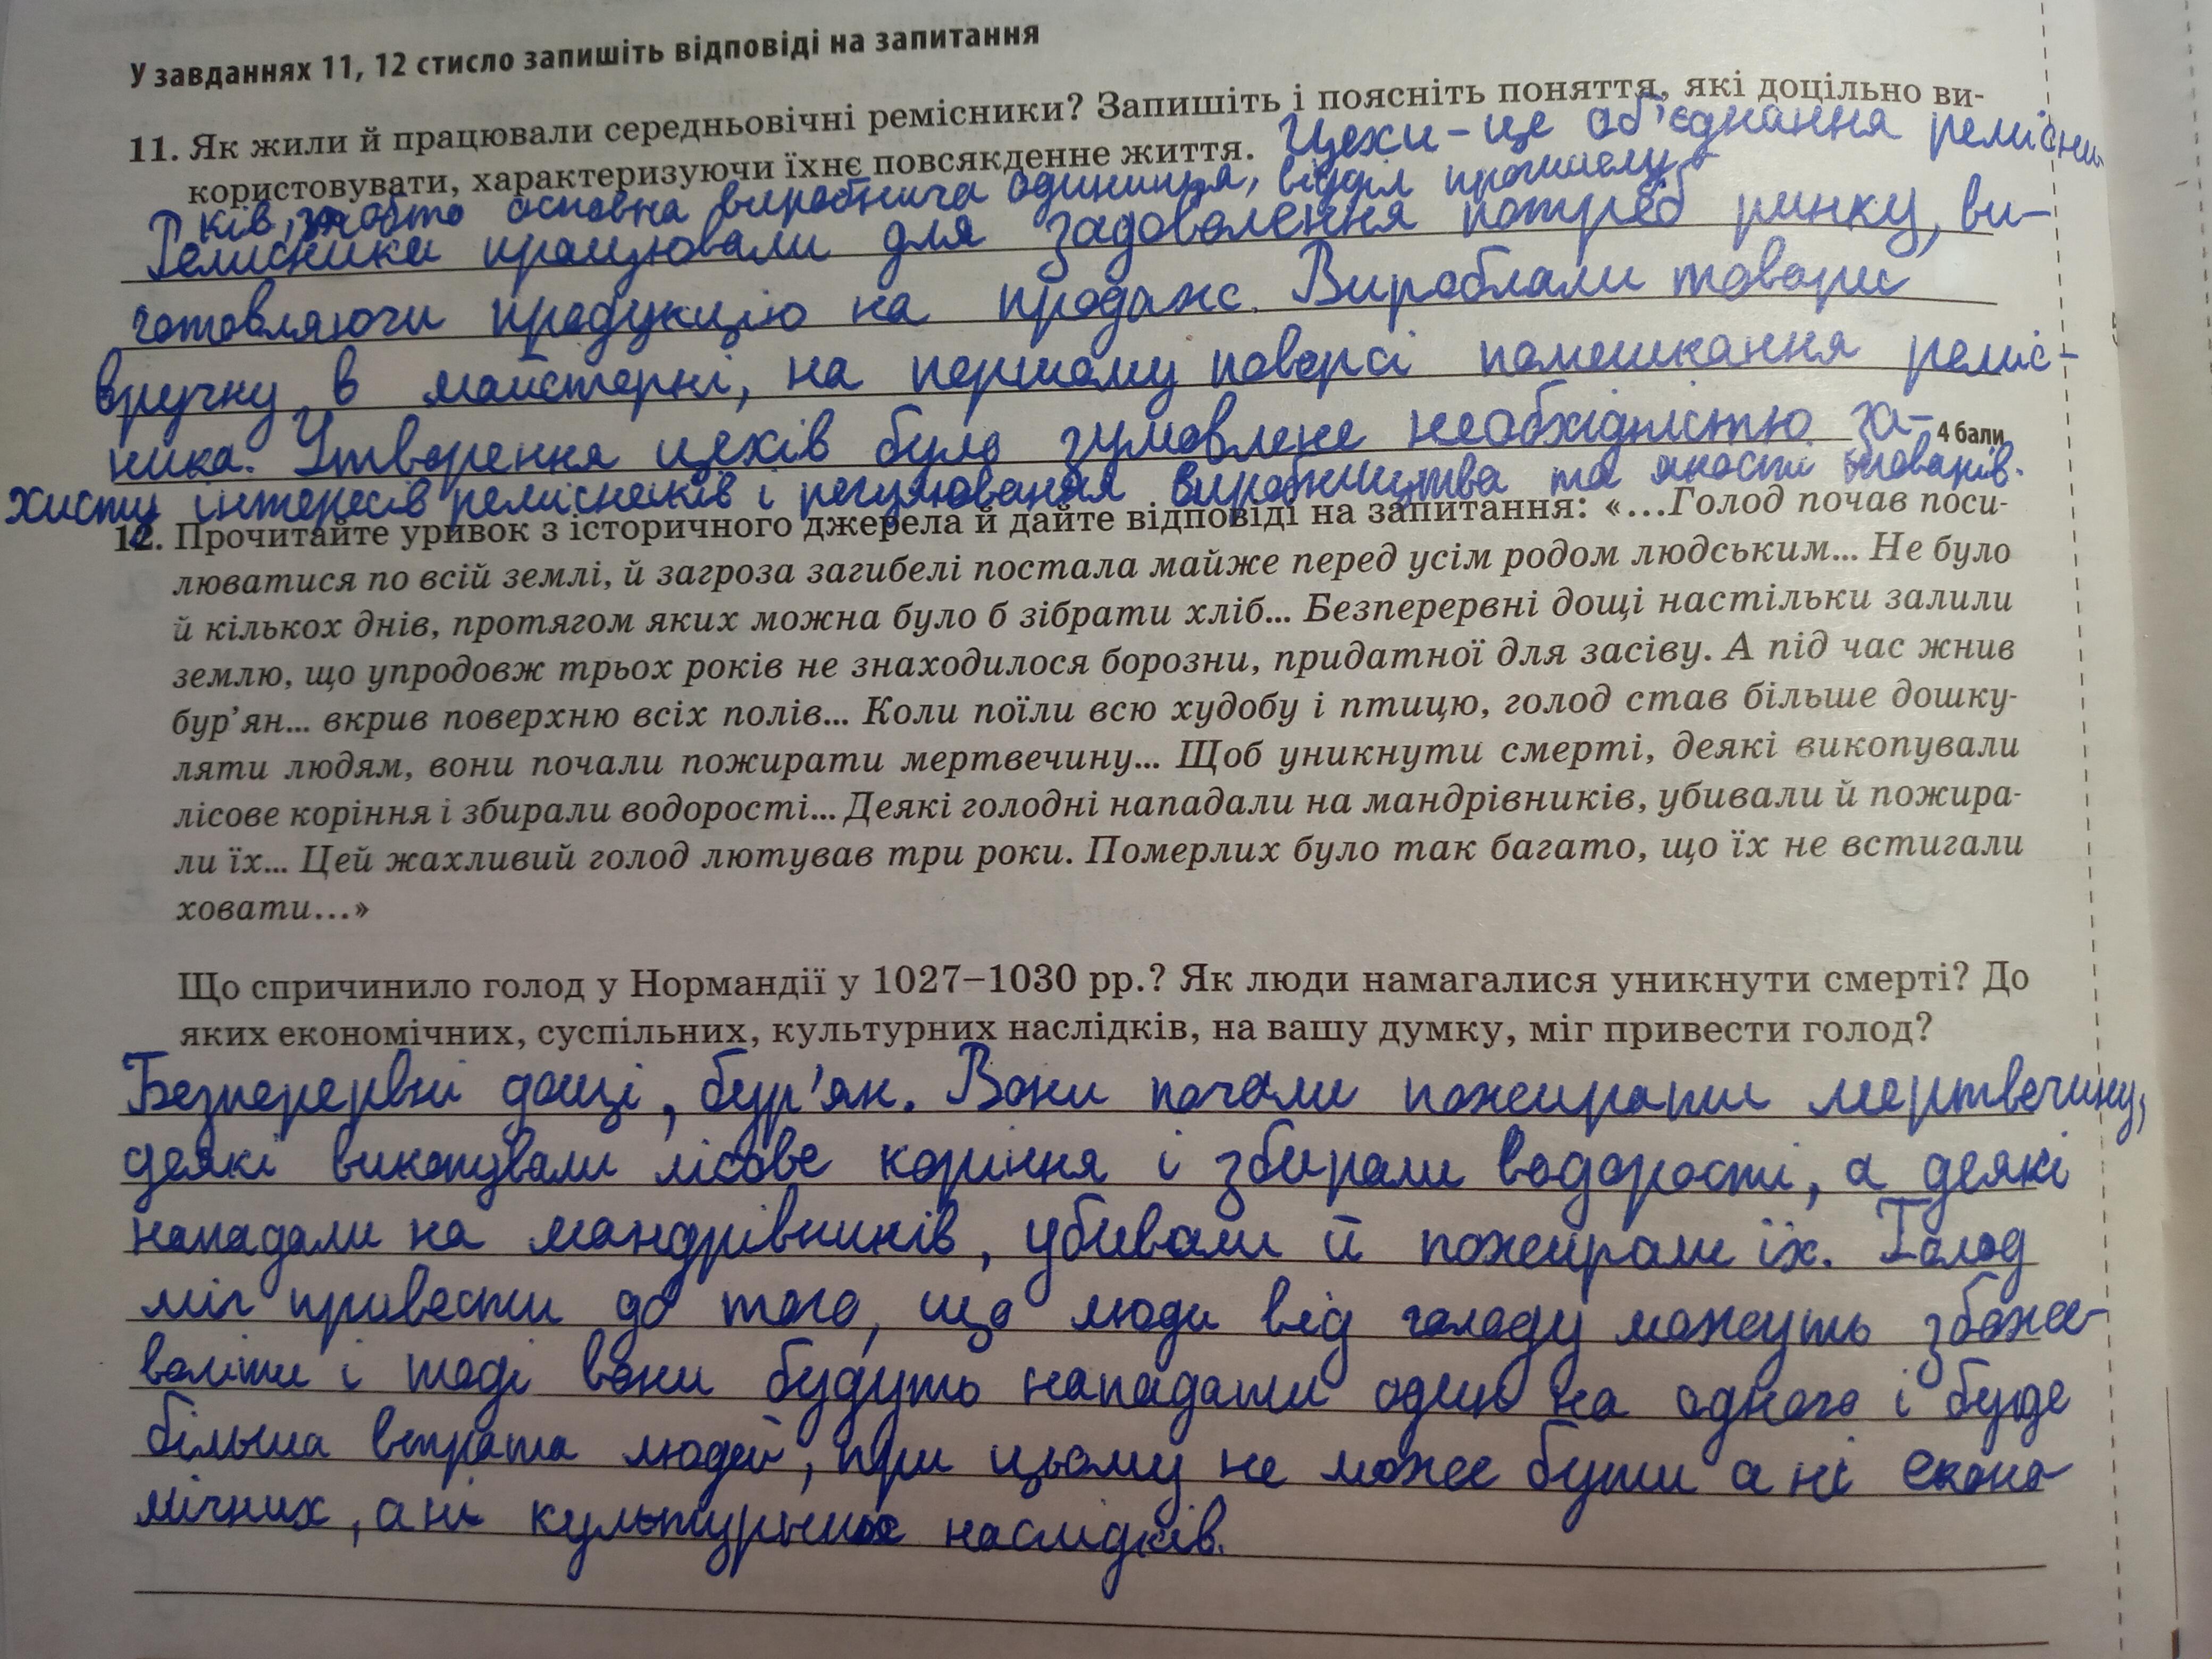 У завданнях 11, 12 стисло запишіть відповіді на запитання
11. Як жили й працювали середньовічні ремісники? Запишіть і поясніть поняття, які доцільно ви-
користовувати, характеризуючи їхнє повсякденне життя. Цехи – це об'єднання ремісни-
ків, тобто основна виробнича одиниця, відділ промислу
Ремисники працювали для задоволення потреб ринку, ви-
готовляючи продукцію на продаж. Виробляли товари
вручну, в майстерні, на першому поверсі помешкання реміс-
ника. Утворення цехів було зумовлене необхідністю за-
4 бали
хисту інтересів ремісників і регулювання виробництва та якості товарів.
12. Прочитайте уривок з історичного джерела й дайте відповіді на запитання: «…Голод почав поси-
люватися по всій землі, й загроза загибелі постала майже перед усім родом людським... Не було
й кількох днів, протягом яких можна було б зібрати хліб... Безперервні дощі настільки залили
землю, що упродовж трьох років не знаходилося борозни, придатної для засіву. А під час жнив
бур’ян... вкрив поверхню всіх полів... Коли поїли всю худобу і птицю, голод став більше дошку-
ляти людям, вони почали пожирати мертвечину... Щоб уникнути смерті, деякі викопували
лісове коріння і збирали водорості... Деякі голодні нападали на мандрівників, убивали й пожира-
ли їх... Цей жахливий голод лютував три роки. Померлих було так багато, що їх не встигали
ховати…»
Що спричинило голод у Нормандії у 1027–1030 рр.? Як люди намагалися уникнути смерті? До
яких економічних, суспільних, культурних наслідків, на вашу думку, міг привести голод?
Безперервні дощі, бур'ян. Вони почали пожирати мертвечину,
деякі викопували лісове коріння і збирали водорості, а деякі
нападали на мандрівників, убивали й пожирали їх. Голод
міг привести до того, що люди від голоду можуть збоже-
воліти і тоді вони будуть нападати один на одного і буде
більша втрата людей, при цьому не може бути а ні еконо-
мічних, а ні культурних наслідків.